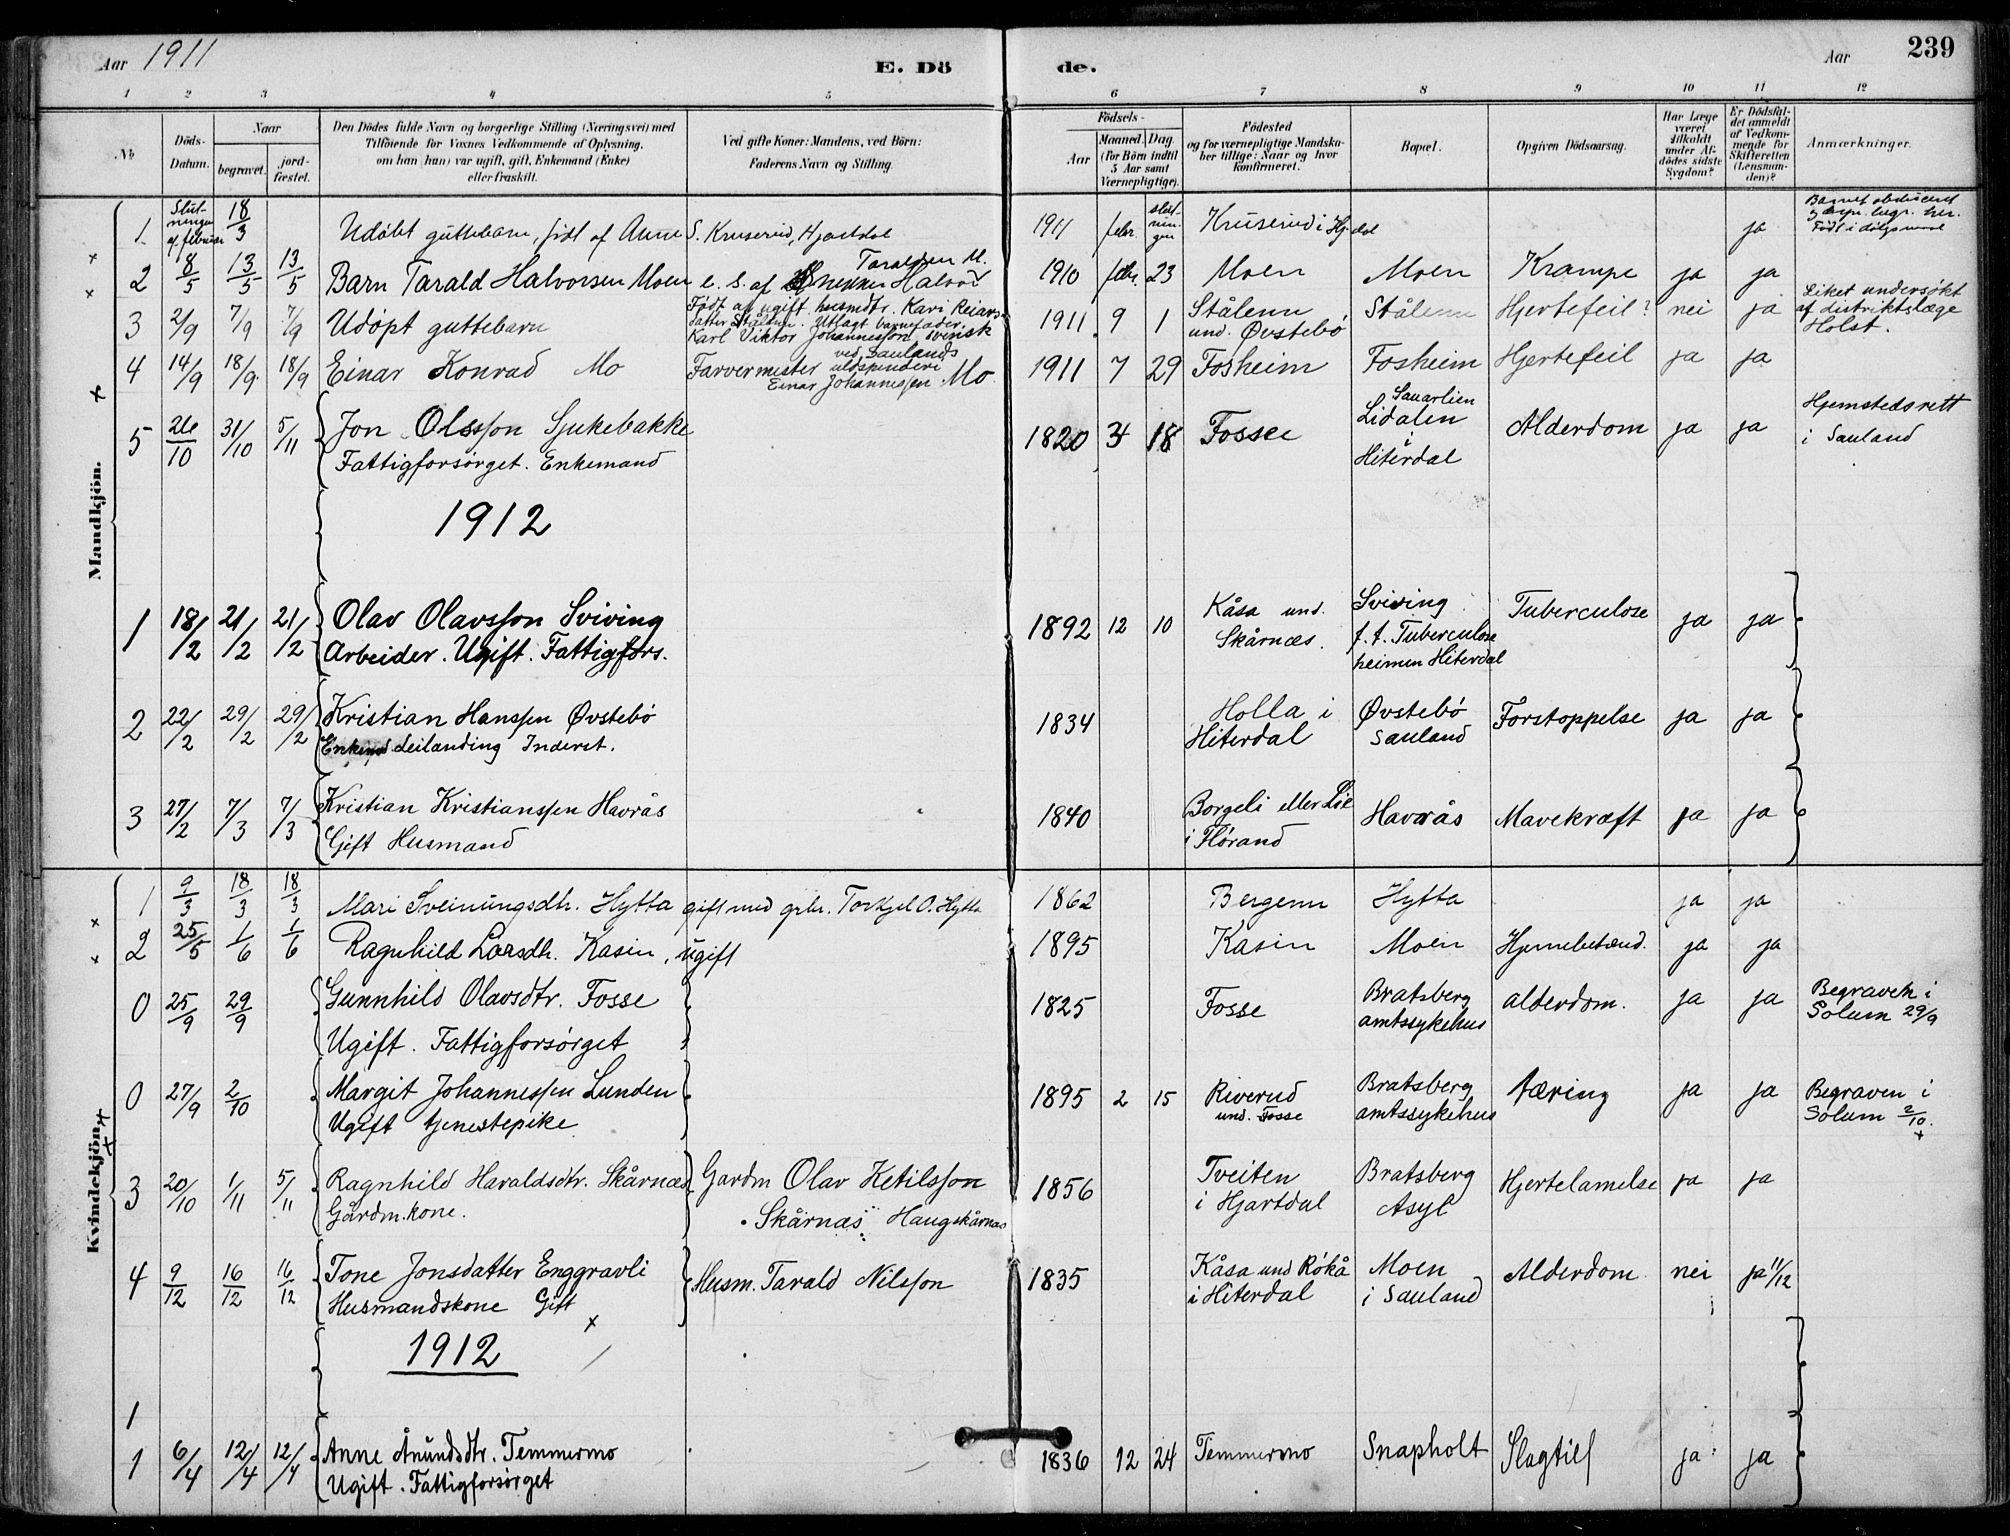 Aar 1911 E. Dö de. Aar 239
1 2 3 4 5 6 7 8 9 10 11 12
No. Döds-Datum. Naar begravet. jordfæstet. Den Dödes fulde Navn og borgerlige Stilling (Næringsvei) med Tilföiende for Voxnes Vedkommende af Oplysning, om han (hun) var ugift, gift, Enkemand (Enke) eller fraskilt. Ved gifte Koner: Mandens, ved Börn: Faderens Navn og Stilling. Födsels- Aar Maaned. Dag. (for Börn indtil 5 Aar samt Værnepligtige). Födested og for værnepligtige Mandskaber tillige: Naar og hvor konfirmeret. Bopæl. Opgiven Dödsaarsag. Har Læge været tilkaldt under Afdödes sidste Sygdom? Er Dödsfaldet anmeldt af Vedkommende for Skifteretten (Lensmanden)? Anmærkninger.
Mandkjön.
1 Slutningen af februar 18/3 Udöbt guttebarn, födt af Anne S. Kruserud, Hjartdal 1911 febr. slutningen Kruserud i Hjdal ja Barnet obduceret Født i dølgsmaal
2 8/5 13/5 13/5 Barn Tarald Halvorsen Moen e. S. af Halvor Taraldsen M. 1910 febr. 23 Moen Moen Krampe ja ja
3 2/9 7/9 7/9 Udöpt guttebarn Født af ugift husmdtr. Kari Reiarsdatter Stålenn. Utlagt barnefader: Karl Viktor Johannesson svensk 1911 9 1 Stålenn und. Øvstebö Stålenn Hjertefeil? nei ja Liket undersøkt af distriktslæge Holst.
4 14/9 18/9. 18/9 Einar Konrad Mo Farvermester ved Saulands uldspinderi Einar Johannessen Mo 1911 7 29 Fosheim Fosheim Hjertefeil ja ja
5 26/10 31/10 5/11 Jon Olsson Sjukebakke 1820 3 18 Fosse Sauarlien Lidalen i Hiterdal Alderdom ja ja Hjemstedsrett i Sauland
Fattigforsørget. Enkemand
1912
1 18/2 21/2 21/2 Olav Olavsson Sviving 1892 12 10 Kåsa und. Skårnæs. Sviving f.t. Tuberculoseheimen Hiterdal Tuberculose ja ja
Arbeider. Ugift. Fattigfors.
2 22/2 29/2 29/2 Kristian Hanssen Øvstebö 1834 Holla i Hiterdal Øvstebö Sauland Forstoppelse ja ja
Enkemd Leilending Inderst.
3 27/2 7/3 7/3 Kristian Kristianssen Havrås 1840 Borgeli eller Lie i Flørand Havrås Mavekræft ja ja
Gift Husmand
Kvindekjön.
1 9/3 18/3 18/3 Mari Sveinungsdh. Hytta gift med grbr. Torkjel O. Hytta 1862 Bergenn Hytta ja ja
2 25/5 1/6 1/6 Ragnhild Larsdh. Kasin, ugift 1895 Kasin Moen Hjernebetænd. ja ja
0 25/9 29/9 Gunnhild Olavsdtr. Fosse 1825 Fosse Bratsberg amtssykehus alderdom. ja ja Begraven i Solum 29/9
Ugift. Fattigforsørget
0 27/9 2/10 Margit Johannessen Lunden 1895 2 15 Riverud und. Fosse Bratsberg amtssykehus tæring ja ja Begraven i Solum 2/10.
Ugift tjenestepike
3 20/10 1/11 5/11 Ragnhild Haraldsdtr. Skårnæs Gardm Olav Ketilsson Skårnæs Haugskårnæs 1856 Tveiten i Hjartdal Bratsberg Asyl Hjertelamelse ja ja
Gardm.kone.
4 9/12 16/12 16/12 Tone Jonsdatter Enggravli Husm. Tarald Nilsson 1835 Kåsa und Rökå i Hiterdal Moen i Sauland Alderdom nei ja 11/12
Husmandskone Gift
1912
1
1 6/4 12/4 12/4 Anne Ånundsdtr. Temmermo 1836 12 24 Temmermo Snapholt Slagtilf ja ja
Ugift. Fattigforsørget